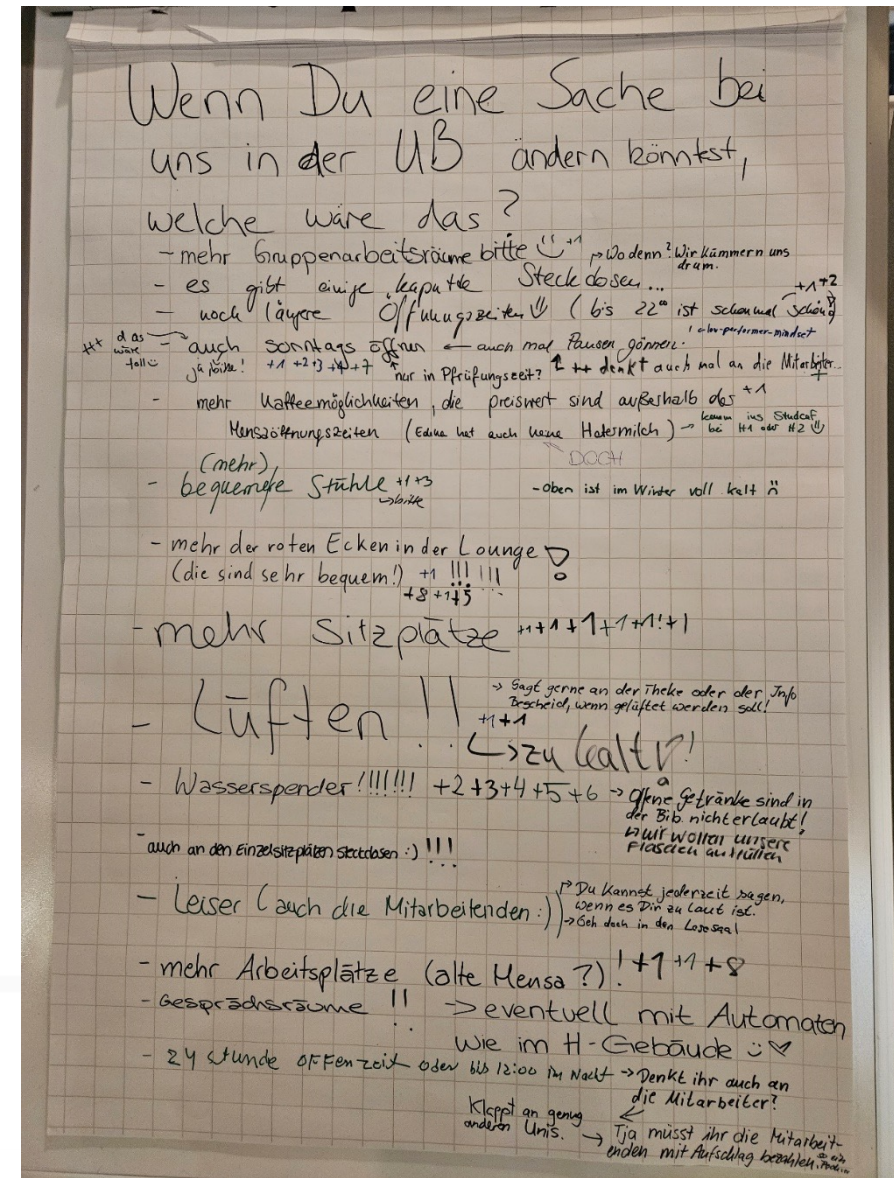 Wenn Du eine Sache bei
uns in der UB ändern könntest,
welche wäre das?
- mehr Gruppenarbeitsräume bitte +1 → Wo denn? Wir kümmern uns
drum.
- es gibt einige kaputte Steckdosen...
- noch längere Öffnungszeiten (bis 22⁰⁰ ist schonmal schön) +1 +2
! low-performer-mindset
++ das wäre toll
- auch sonntags öffnen ← auch mal Pausen gönnen.
ja bitte! +1 +2 +3 +4 +7 nur in Pfrüfungszeit? ++ denkt auch mal an die Mitarbeiter
- mehr Kaffeemöglichkeiten, die preiswert sind außerhalb der +1
Mensaöffnungszeiten (Edina hat auch keine Hafermilch) → komm ins Studcaf
bei H1 oder H2
DOCH
(mehr)
- bequemere Stühle +1 +3
↳ bitte
- oben ist im Winter voll kalt
- mehr der roten Ecken in der Lounge !
(die sind sehr bequem!) +1 !!! !!!
+8 +1 +5
- mehr Sitzplätze +1 +1 +1 +1 +1! +1
- Lüften !!
→ Sagt gerne an der Theke oder der Info
Bescheid, wenn gelüftet werden soll!
+1 +1
↳ zu kalt !!
- Wasserspender!!!!!!! +2 +3 +4 +5 +6 → offene Getränke sind in
der Bib. nicht erlaubt!
↳ wir wollen unsere
Flaschen auffüllen
- auch an den Einzelsitzplätzen Steckdosen :) !!!
- Leiser (auch die Mitarbeitenden :))
→ Du kannst jederzeit sagen,
wenn es Dir zu laut ist.
→ Geh doch in den Lesesaal
- mehr Arbeitsplätze (alte Mensa?)! +1 +1 +8
- Gesprächsräume !! → eventuell mit Automaten
wie im H-Gebäude
- 24 stunde offenzeit oder bis 12:00 im Nacht → Denkt ihr auch an
die Mitarbeiter?
Klappt an genug
anderen Unis.
→ Tja müsst ihr die Mitarbeit-
enden mit Aufschlag bezahlen.